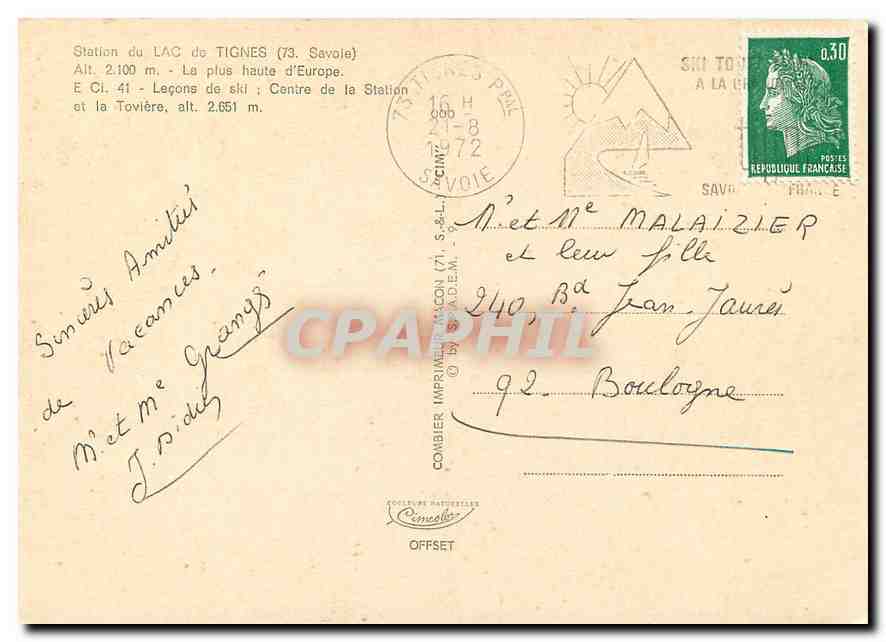 Station du LAC de TIGNES (73. Savoie)
Alt. 2.100 m. - La plus haute d'Europe.
E Ci. 41 - Leçons de ski ; Centre de la Station
et la Tovière, alt. 2.651 m.
73 TIGNES PPAL
16 H
21-8
1972
SAVOIE
SKI TOU
A LA
SAVO FRANCE
0,30
POSTES
REPUBLIQUE FRANÇAISE
Sincères Amitiés
de Vacances.
Mr et Me Grangé
J. Didier
COMBIER IMPRIMEUR MACON (71, S.-&-L.) "CIM"
© by S.P.A.D.E.M. - 9
Mr et Me MALAIZIER
et leur fille
240, Bd Jean-Jaurès
92. Boulogne
CPAPHIL
COULEURS NATURELLES
Cimcolor
OFFSET